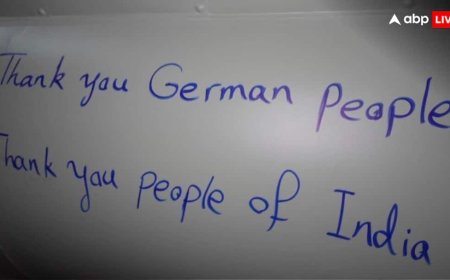 abp LIVE
Thank you German People
Thank you people of India